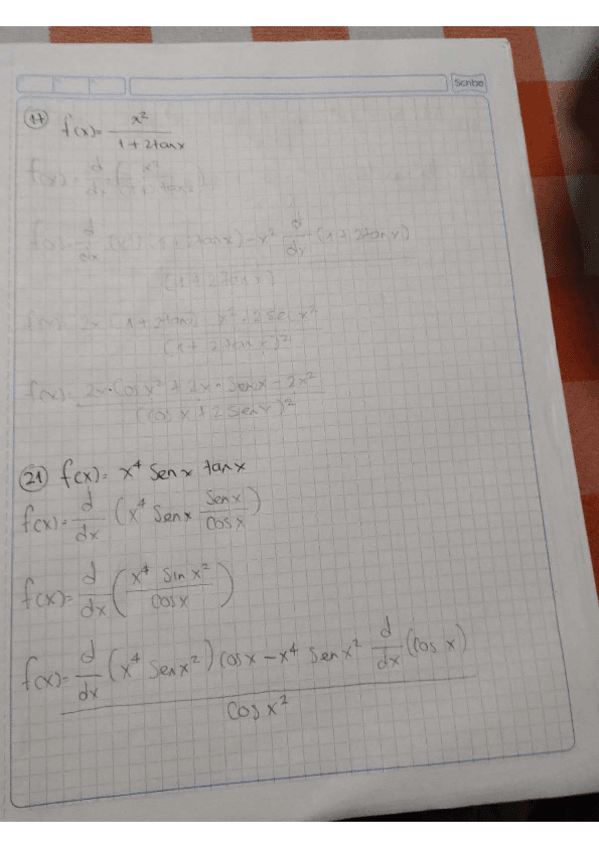 Scribe
17 f(x)= x² / 1+2tanx
f(x)= d/dx (x² / 1+2tanx)
f(x)= d/dx (x²)(1+2tanx)-x² d/dx (1+2tanx)
(1+2tanx)²
f(x)= 2x (1+2tanx) - x² · 2 sec x²
(1+2tanx)²
f(x)= 2x·Cosx²+2x·Senx-2x²
(cosx+2senx)²
21 f(x)= x⁴ Senx tanx
f(x)= d/dx (x⁴ Senx Senx/Cosx)
f(x)= d/dx (x⁴ Sinx² / Cosx)
f(x)= d/dx (x⁴ Senx²) Cosx-x⁴ Senx² d/dx (Cosx)
Cosx²